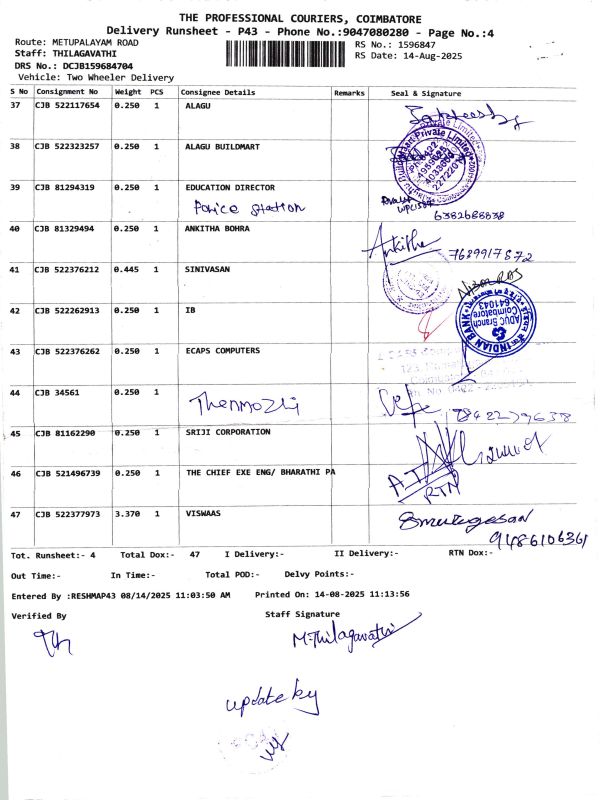 THE PROFESSIONAL COURIERS, COIMBATORE
Delivery Runsheet - P43 - Phone No.:9047080280 - Page No.:4
Route: METUPALAYAM ROAD RS No.: 1596847
Staff: THILAGAVATHI RS Date: 14-Aug-2025
DRS No.: DCJB159684704
Vehicle: Two Wheeler Delivery
S No Consignment No Weight PCS Consignee Details Remarks Seal & Signature
37 CJB 522117654 0.250 1 ALAGU
38 CJB 522323257 0.250 1 ALAGU BUILDMART
39 CJB 81294319 0.250 1 EDUCATION DIRECTOR
Police Station
6382688838
40 CJB 81329494 0.250 1 ANKITHA BOHRA
Ankitha 7639917872
41 CJB 522376212 0.445 1 SINIVASAN
42 CJB 522262913 0.250 1 IB
INDIAN BANK
ADUC Branch
Coimbatore
641043
43 CJB 522376262 0.250 1 ECAPS COMPUTERS
44 CJB 34561 0.250 1
Thenmozhi
45 CJB 81162290 0.250 1 SRIJI CORPORATION
46 CJB 521496739 0.250 1 THE CHIEF EXE ENG/ BHARATHI PA
RTN
47 CJB 522377973 3.370 1 VISWAAS
9486106361
Tot. Runsheet:- 4 Total Dox:- 47 I Delivery:- II Delivery:- RTN Dox:-
Out Time:- In Time:- Total POD:- Delvy Points:-
Entered By :RESHMAP43 08/14/2025 11:03:50 AM Printed On: 14-08-2025 11:13:56
Verified By Staff Signature
M.Thilagavathi
update by